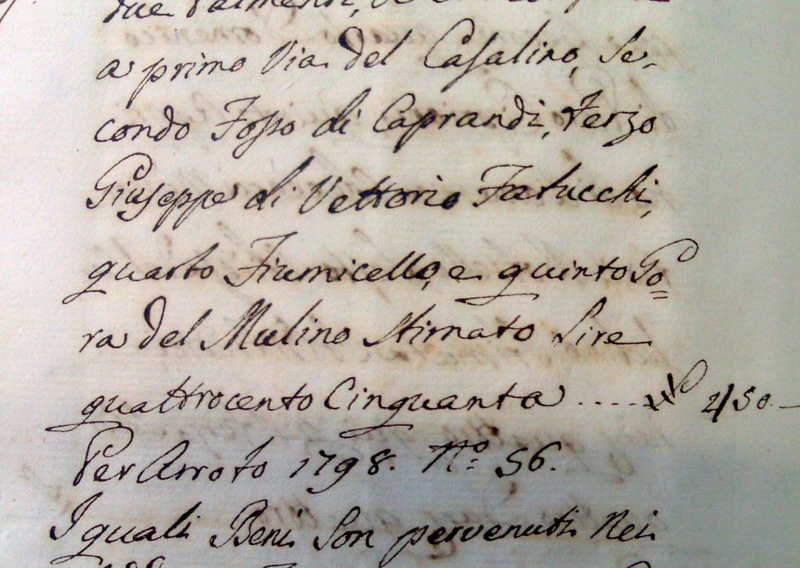 due Palmenti,
a primo Via del Casalino, Se-
condo Fosso di Caprandi, Terzo
Giuseppe di Vettorio Fatucchi,
quarto Fiumicello, e quinto Go=
ra del Mulino Stimato Lire
quattrocento Cinquanta .... 450.—
Per Arroto 1798. No. 56.
I quali Beni Son pervenuti Nei